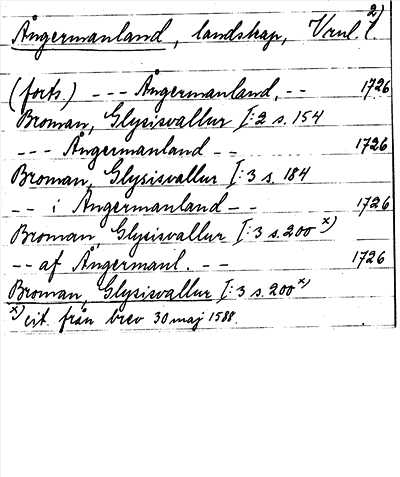 Ångermanland, landskap, Vrul. (2)
(forts.) --- Ångermanland. -- 1726
Broman, Glysisvallur I:2 s. 154
--- Ångermanland -- 1726
Broman, Glysisvallur I:3 s. 184
-- i Ångermanland -- 1726
Broman, Glysisvallur I:3 s. 200 x)
-- af Ångermanl. -- 1726
Broman, Glysisvallur I:3 s. 200 x)
x) cit. från brev 30 maj 1588.